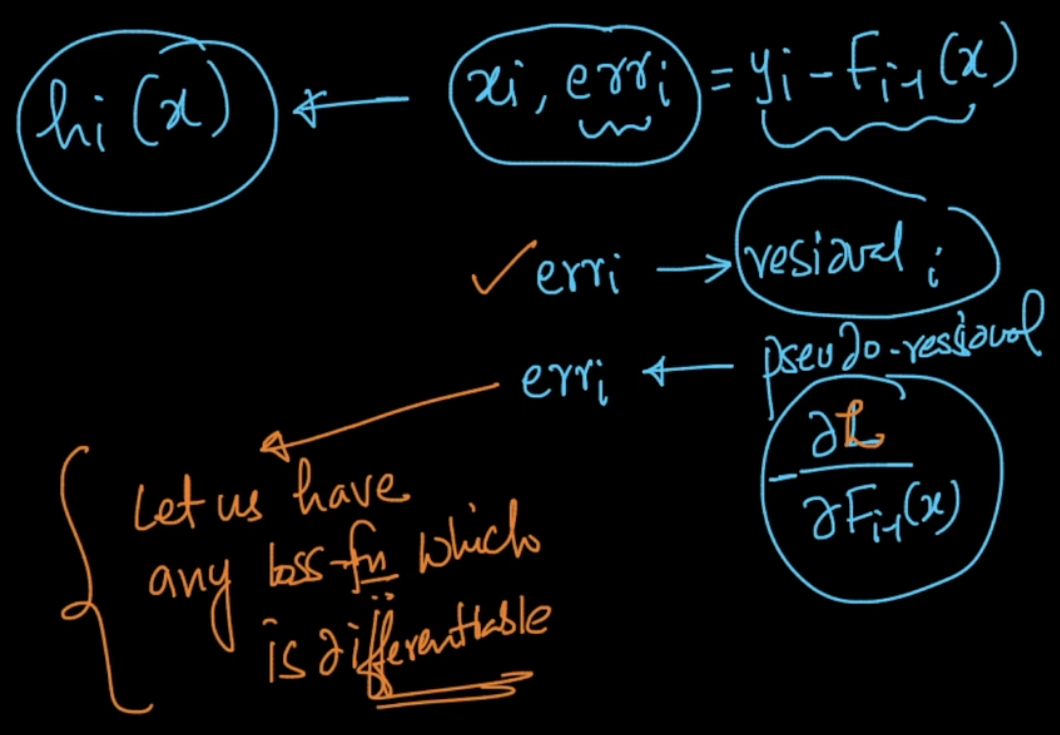 hi(x) ← xi, erri = yi - Fi-1(x)
✓ erri → residual i
erri ← pseudo-residual
-∂L/∂Fi-1(x)
Let us have
any loss-fn which
is differentiable